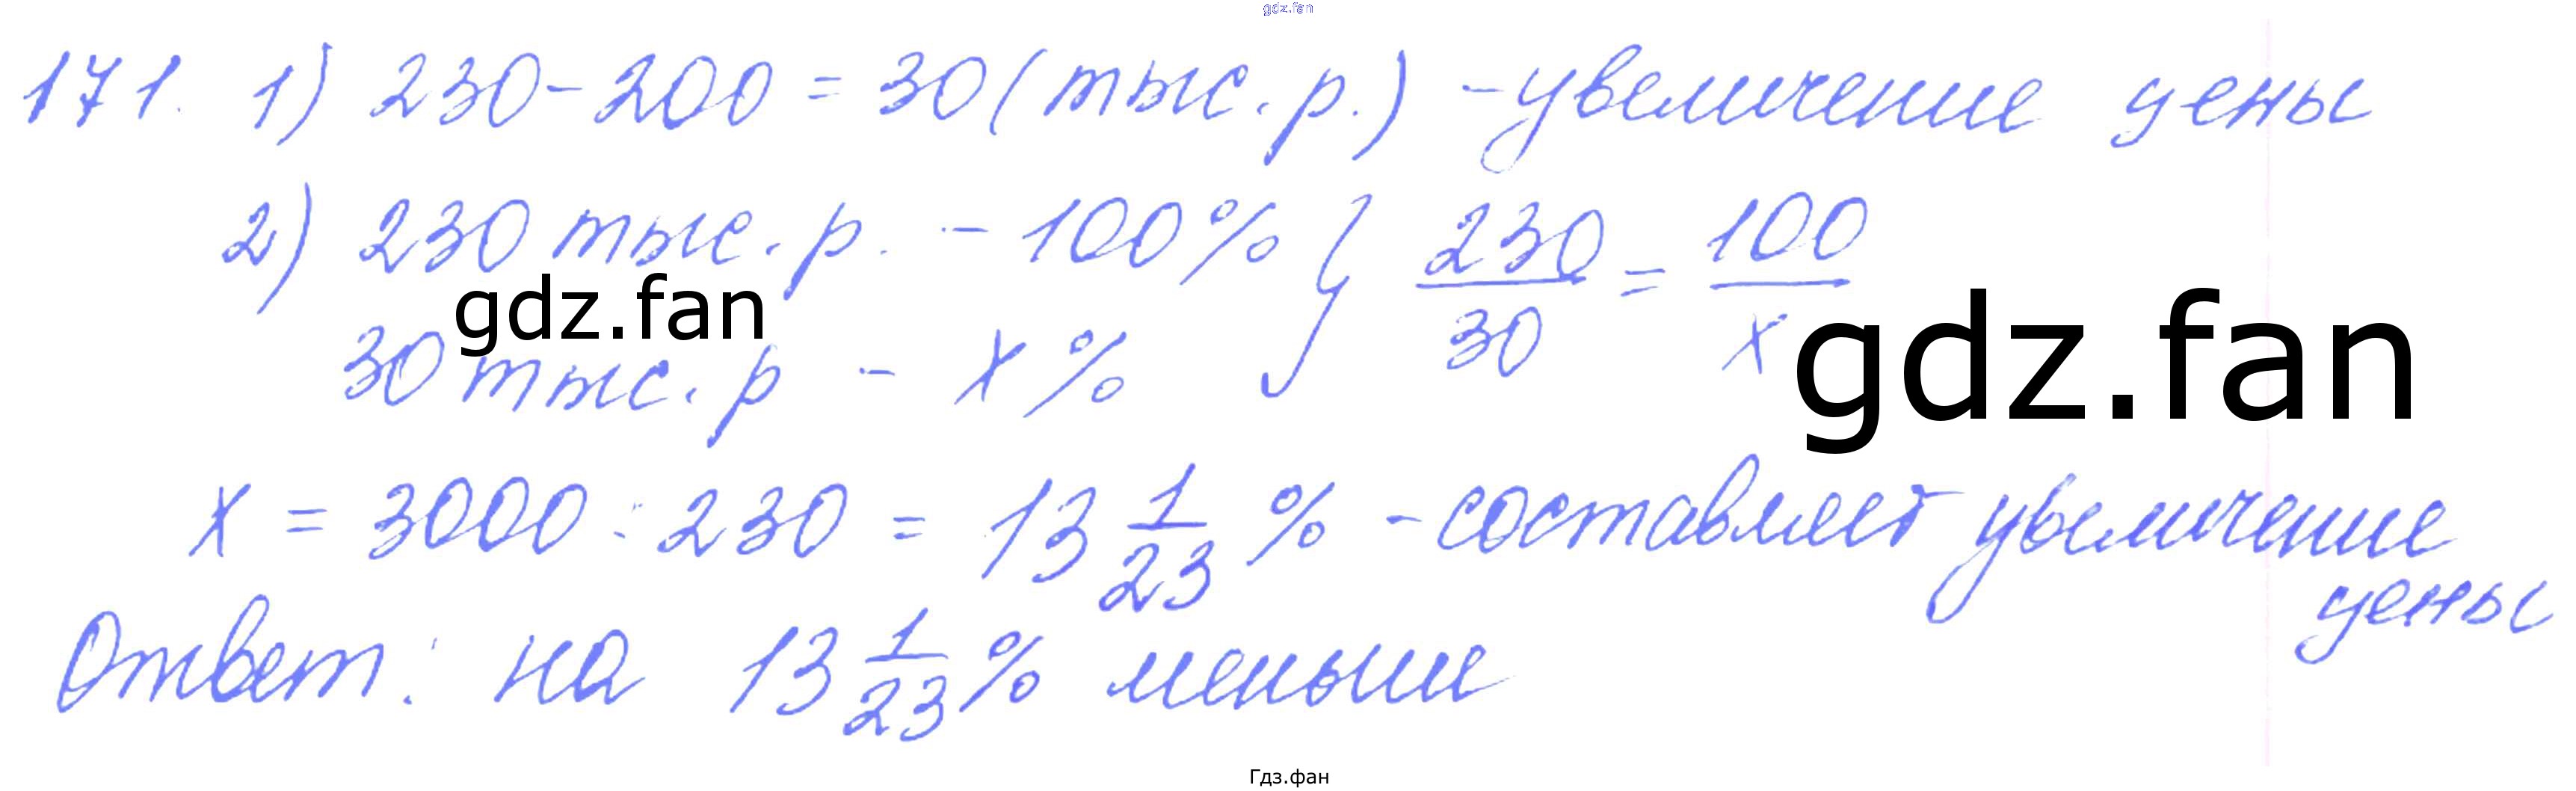 gdz.fan
171. 1) 230 - 200 = 30 (тыс. р.) - увеличение цены
2) 230 тыс. р. - 100% } 230/30 = 100/x
gdz.fan
gdz.fan
30 тыс. р - x %
x = 3000 : 230 = 13 1/23 % - составляет увеличение
цены
Ответ: на 13 1/23 % меньше
Гдз.фан